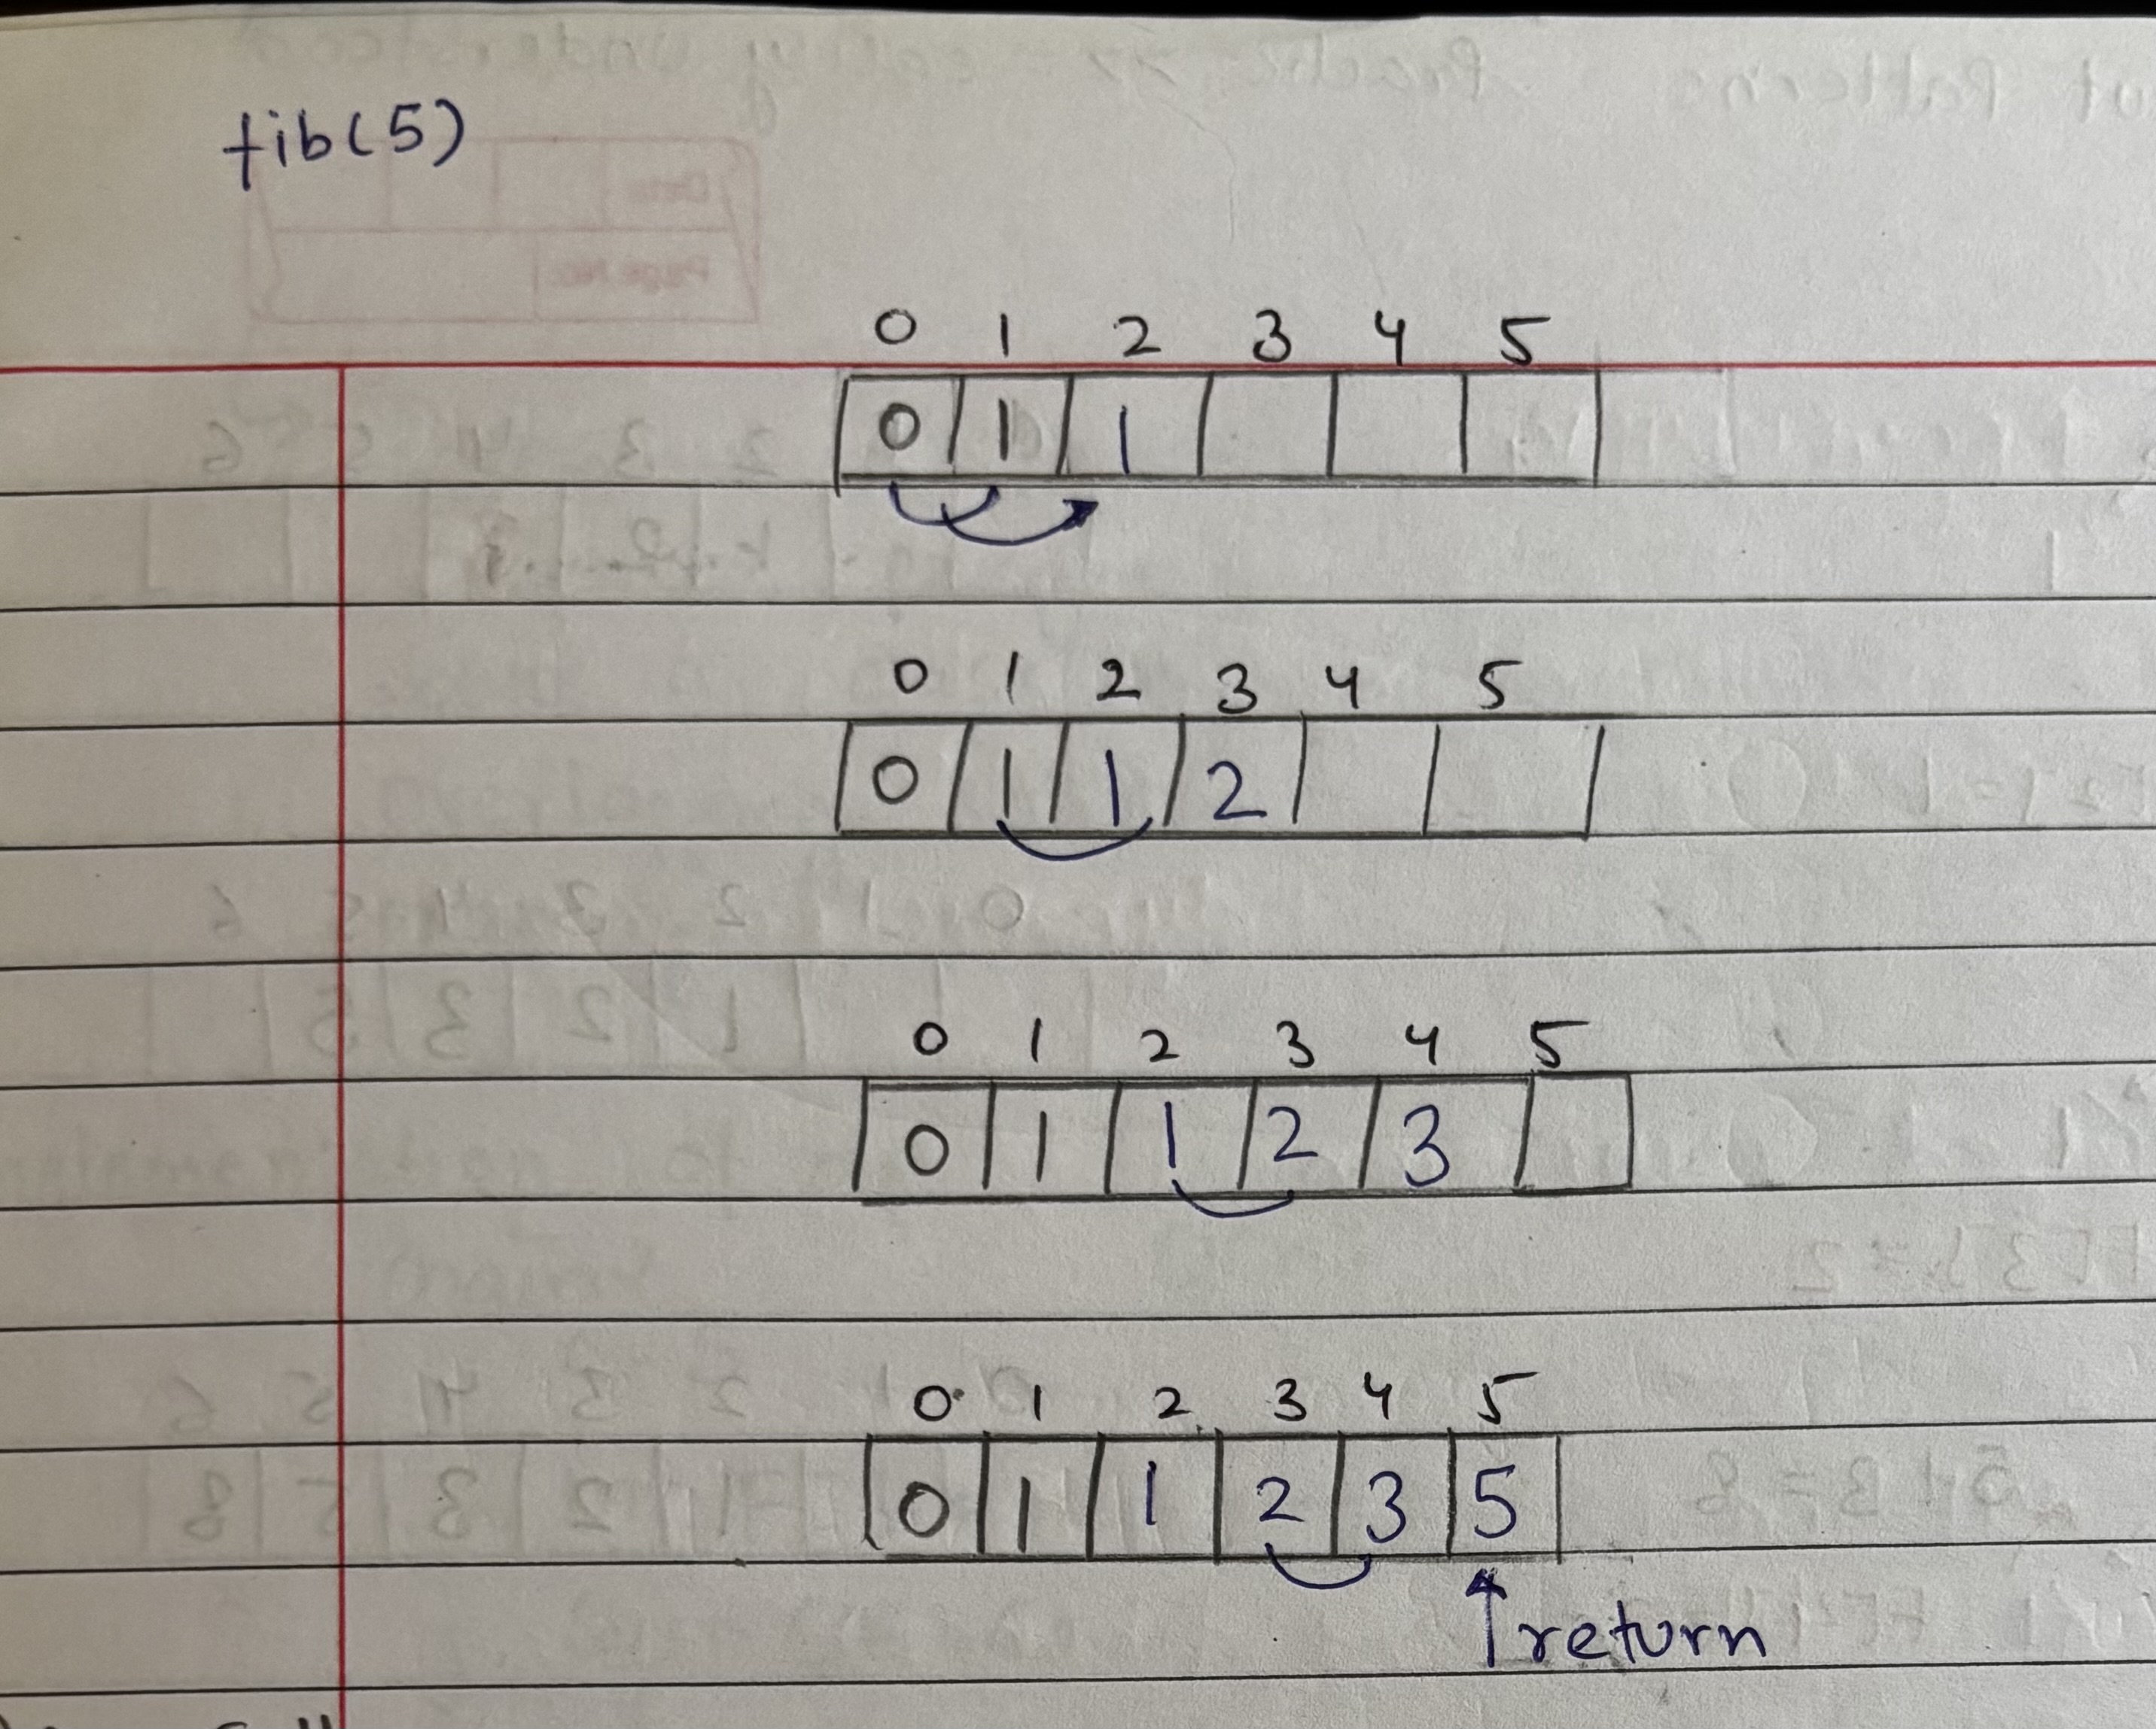 fib(5)
0 1 2 3 4 5
0 1 1
0 1 2 3 4 5
0 1 1 2
0 1 2 3 4 5
0 1 1 2 3
0 1 2 3 4 5
0 1 1 2 3 5
return